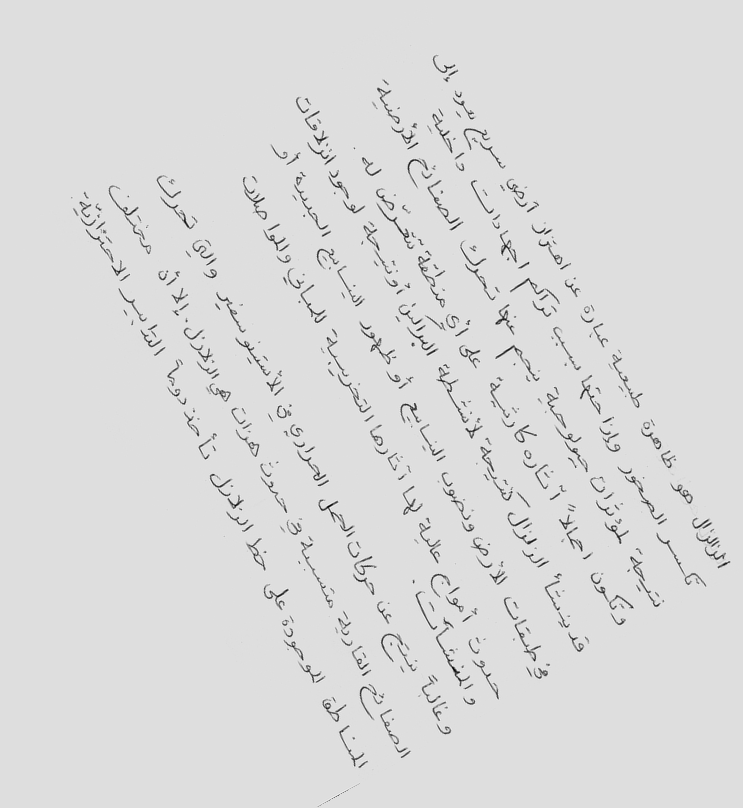 الزلزال هو ظاهرة طبيعية عبارة عن اهتزاز أرضي سريع يعود إلى
تكسر الصخور وإزاحتها بسبب تراكم اجهادات داخلية
نتيجة لمؤثرات جيولوجية ينجم عنها تحرك الصفائح الأرضية
وتكون اجمالاً آثاره كارثية على أي منطقة تتعرض له .
قد ينشأ الزلزال كنتيجة لأنشطة البراكين أو نتيجة لوجود انزلاقات
في طبقات الأرض ونضوب الينابيع أو ظهور الينابيع الجديدة أو
حدوث أمواج عالية لها آثارها التخريبية للمباني والمواصلات
والمنشآت .
وغالباً ينتج عن حركات الحمل الحراري في الأستينوسفير والتي تحرك
الصفائح القارية متسببة في حدوث هزات هي الزلازل . إلا أن مختلف
المناطق الموجودة على خط الزلازل تأخذ دوماً التدابير الاحترازية